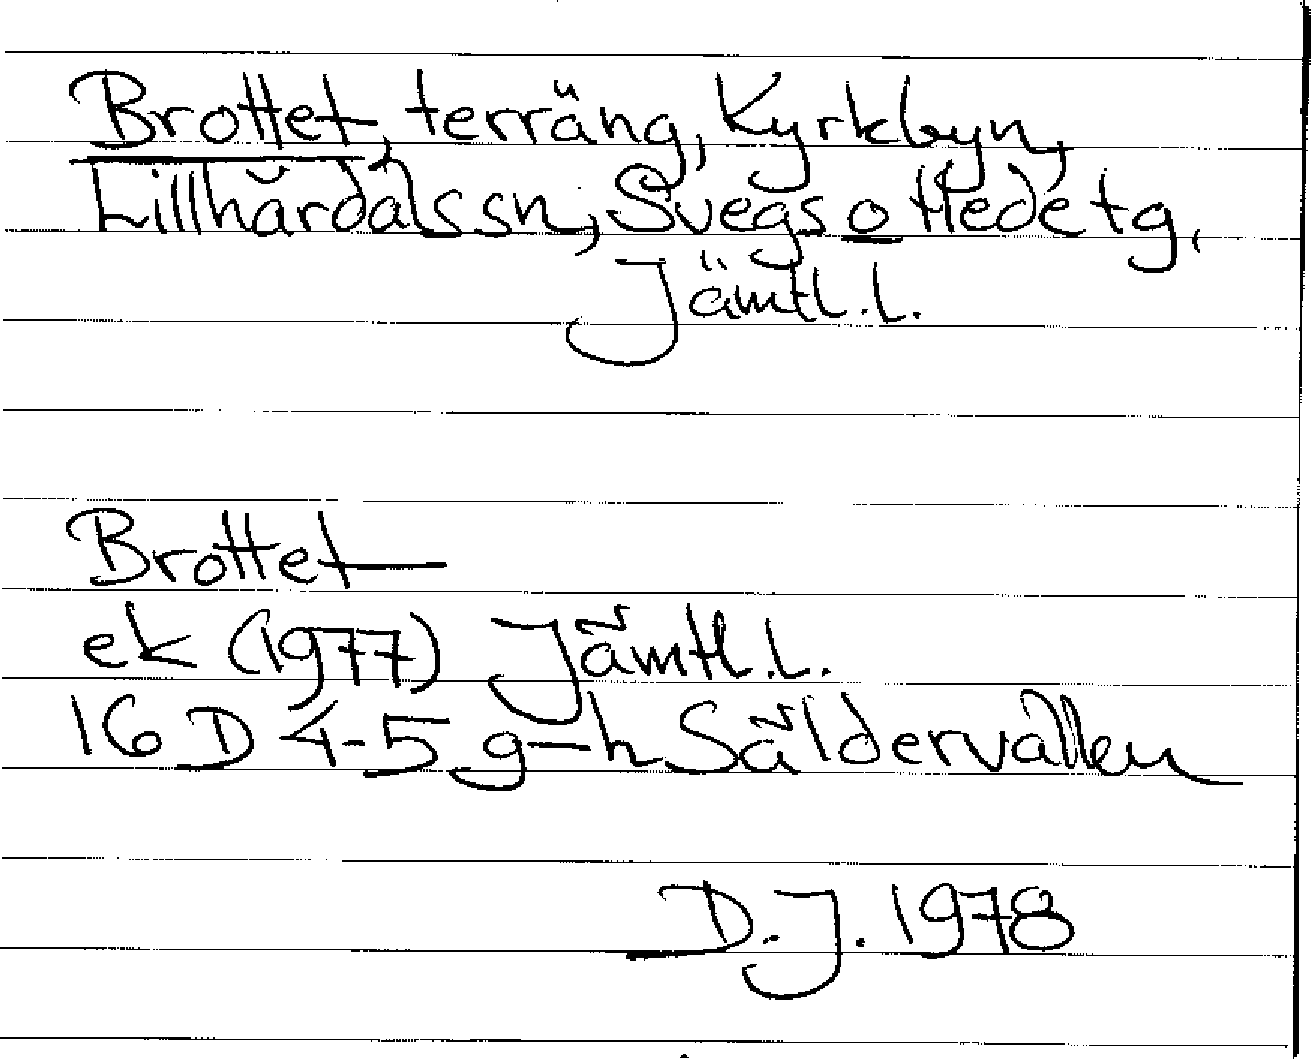 Brottet, terräng, Kyrkbyn,
Lillhärdals sn, Svegs o Hede tg,
Jämtl. l.
Brottet
ek (1977) Jämtl. L.
16 D 4-5 g-h Säldervallen
D.J. 1978